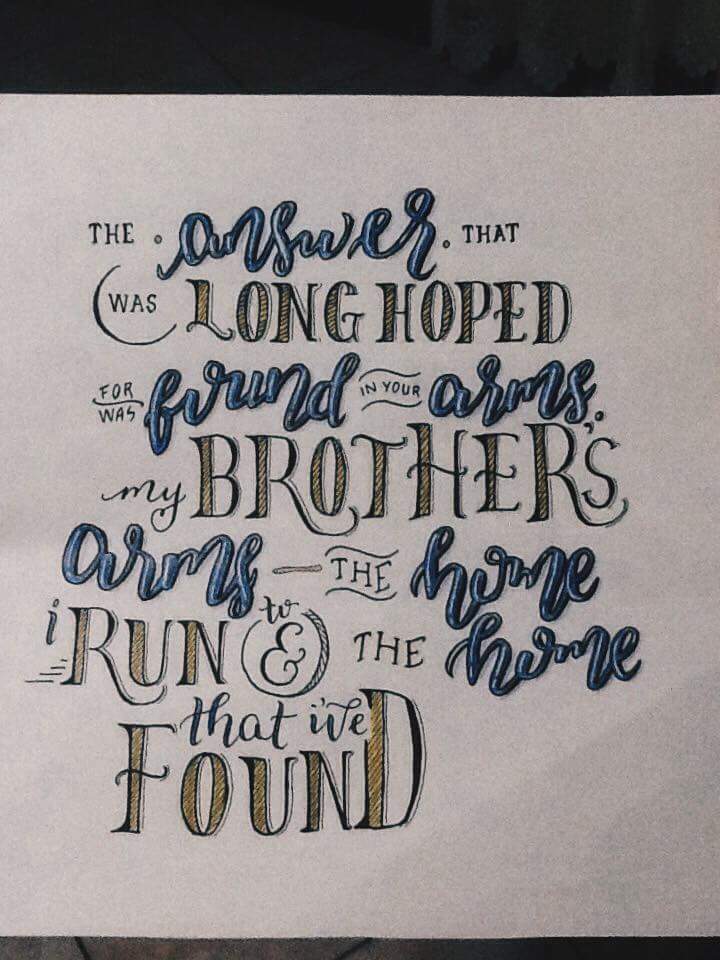 THE answer. THAT
WAS LONG HOPED
FOR WAS found IN YOUR arms.
my BROTHER'S
arms — THE home
i RUN to & THE home
that i've
FOUND